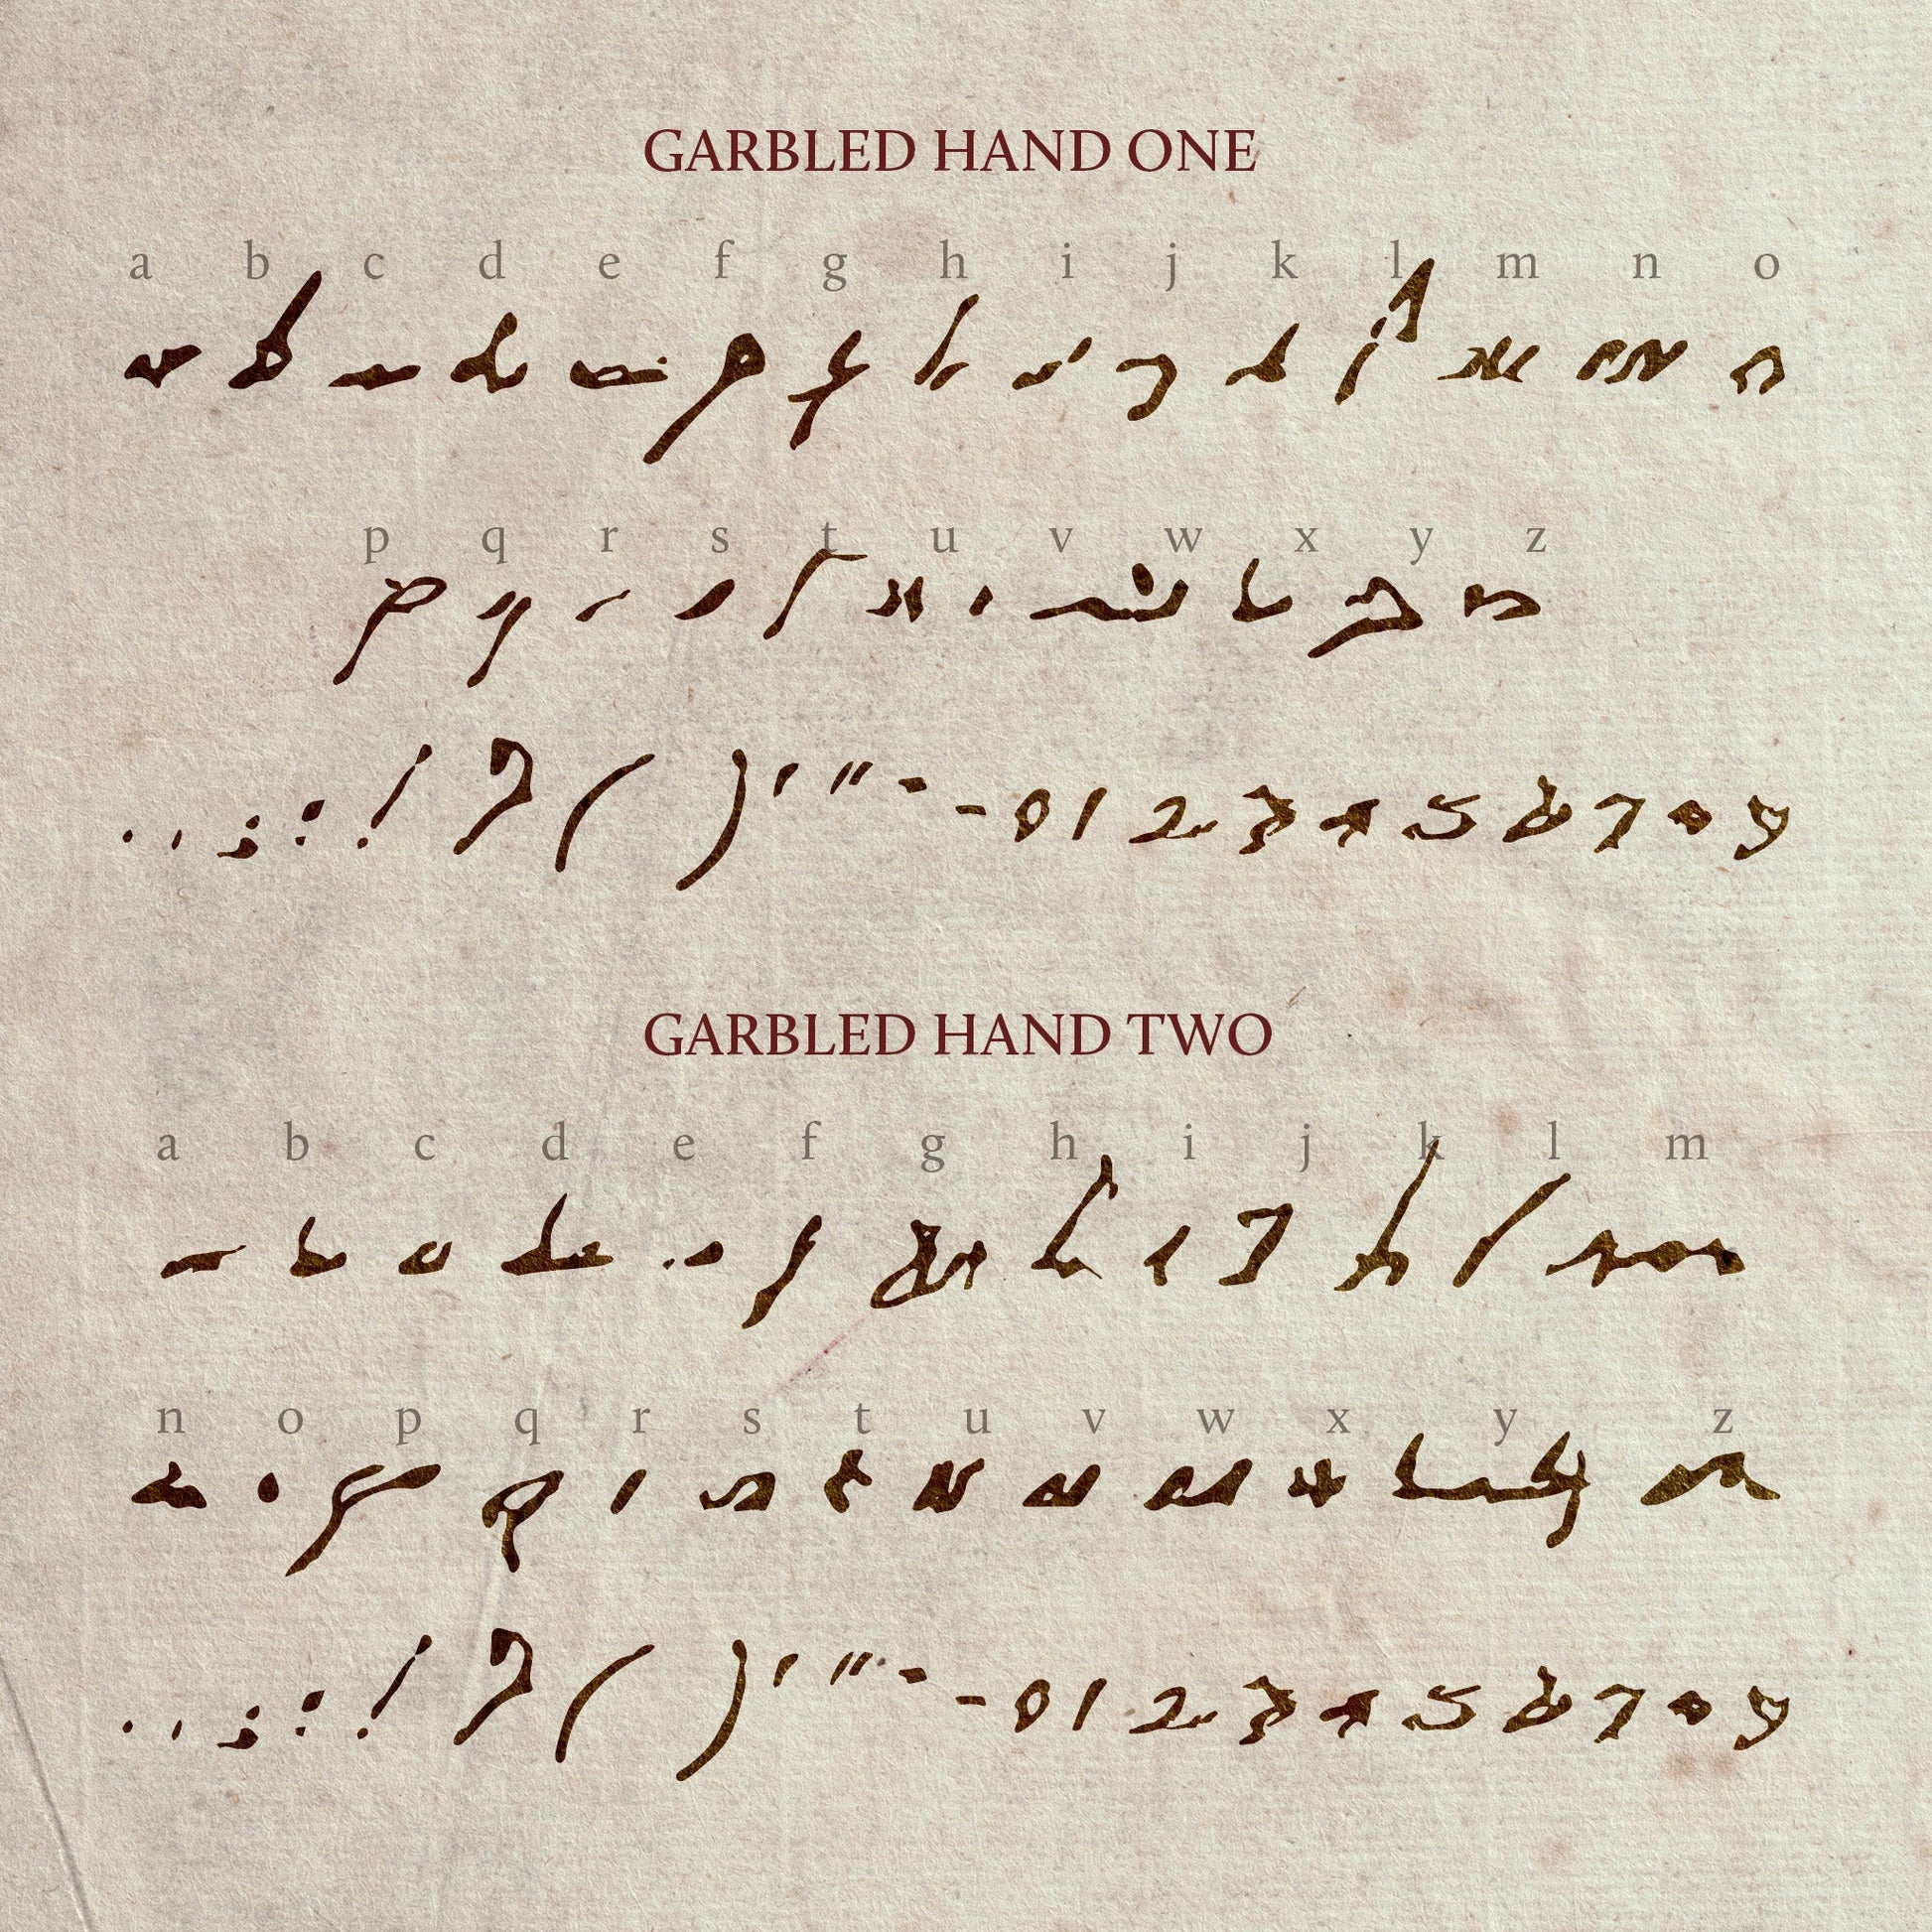 GARBLED HAND ONE
a b c d e f g h i j k l m n o
a b c d e f g h i j k l m n o
p q r s t u v w x y z
p q r s t u v w x y z
. , ; : ! ? ( ) ' " - 0 1 2 3 4 5 6 7 8 9
GARBLED HAND TWO
a b c d e f g h i j k l m
a b c d e f g h i j k l m
n o p q r s t u v w x y z
n o p q r s t u v w x y z
. , ; : ! ? ( ) ' " - 0 1 2 3 4 5 6 7 8 9